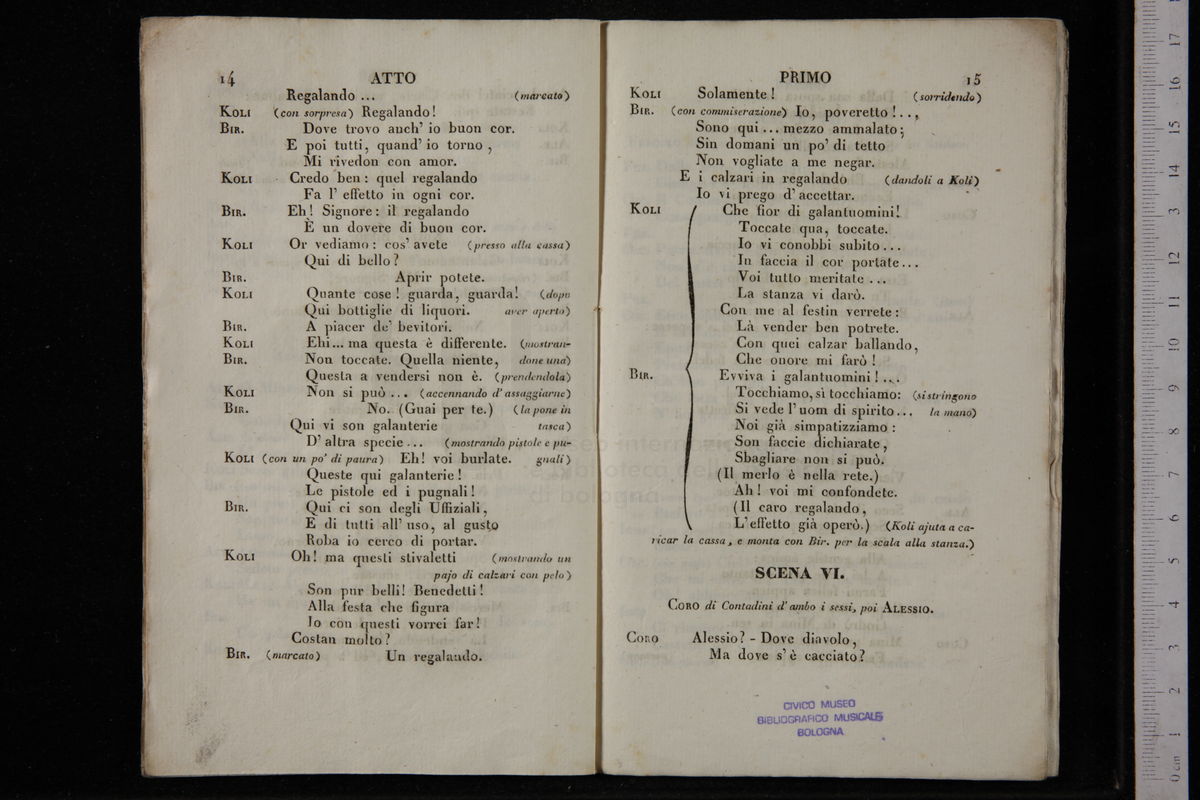 14 ATTO
Regalando ... (marcato)
KOLI (con sorpresa) Regalando!
BIR. Dove trovo anch' io buon cor.
E poi tutti, quand' io torno,
Mi rivedon con amor.
KOLI Credo ben: quel regalando
Fa l' effetto in ogni cor.
BIR. Eh! Signore: il regalando
È un dovere di buon cor.
KOLI Or vediamo: cos' avete (presso alla cassa)
Qui di bello?
BIR. Aprir potete.
KOLI Quante cose! guarda, guarda! (dopo
Qui bottiglie di liquori. aver aperto)
BIR. A piacer de' bevitori.
KOLI Ehi... ma questa è differente. (mostran-
BIR. Non toccate. Quella niente, done una)
Questa a vendersi non è. (prendendola)
KOLI Non si può ... (accennando d' assaggiarne)
BIR. No. (Guai per te.) (la pone in
Qui vi son galanterie tasca)
D' altra specie ... (mostrando pistole e pu-
KOLI (con un po' di paura) Eh! voi burlate. gnali)
Queste qui galanterie!
Le pistole ed i pugnali!
BIR. Qui ci son degli Uffiziali,
E di tutti all' uso, al gusto
Roba io cerco di portar.
KOLI Oh! ma questi stivaletti (mostrando un
pajo di calzari con pelo)
Son pur belli! Benedetti!
Alla festa che figura
Io con questi vorrei far!
Costan molto?
BIR. (marcato) Un regalando.
PRIMO 15
KOLI Solamente! (sorridendo)
BIR. (con commiserazione) Io, poveretto!...
Sono qui ... mezzo ammalato;
Sin domani un po' di tetto
Non vogliate a me negar.
E i calzari in regalando (dandoli a Koli)
Io vi prego d' accettar.
KOLI Che fior di galantuomini!
Toccate qua, toccate.
Io vi conobbi subito ...
In faccia il cor portate ...
Voi tutto meritate ...
La stanza vi darò.
Con me al festin verrete:
Là vender ben potrete.
Con quei calzar ballando,
Che onore mi farò!
BIR. Evviva i galantuomini! ...
Tocchiamo, sì tocchiamo: (si stringono
Si vede l' uom di spirito ... la mano)
Noi già simpatizziamo:
Son faccie dichiarate,
Sbagliare non si può.
(Il merlo è nella rete.)
Ah! voi mi confondete.
(Il caro regalando,
L' effetto già operò.) (Koli ajuta a ca-
ricar la cassa, e monta con Bir. per la scala alla stanza.)
SCENA VI.
CORO di Contadini d' ambo i sessi, poi ALESSIO.
CORO Alessio? - Dove diavolo,
Ma dove s' è cacciato?
CIVICO MUSEO
BIBLIOGRAFICO MUSICALE
BOLOGNA